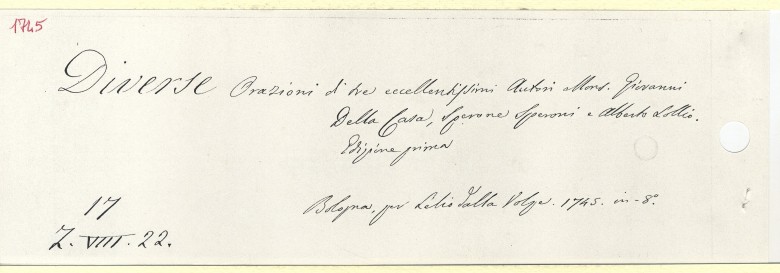 1745
Diverse Orazioni di tre eccellentissimi Autori Mons. Giovanni
Della Casa, Sperone Speroni e Alberto Lollio.
Edizione prima
Bologna, per Lelio dalla Volpe. 1745. in-8°.
17
Z. VIII. 22.